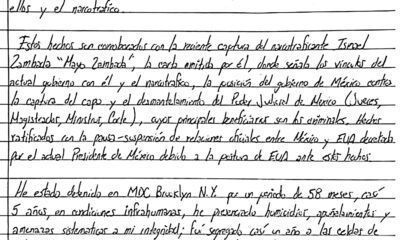 ellos y el narcotrafico.
Estos hechos son corroborados con la reciente captura del narcotraficante Ismael
Zambada "Mayo Zambada", la carta emitida por él, donde señala los vinculos del
actual gobierno con él y el narcotrafico, la posición del gobierno de México contra
la captura del capo y el desmantelamiento del Poder Judicial de Mexico (Jueces,
Magistrados, Ministros, Corte), cuyos principales beneficiarios son los criminales. Hechos
ratificados con la pausa-suspensión de relaciones oficiales entre México y EUA decretada
por el actual Presidente de México debido a la postura de EUA ante estos hechos.
He estado detenido en MDC Brooklyn N.Y. por un periodo de 58 meses, casi
5 años, en condiciones infrahumanas, he presenciado homicidios, apuñalamientos y
amenazas sistematicas a mi integridad; Fui segregado casi un año a las celdas de